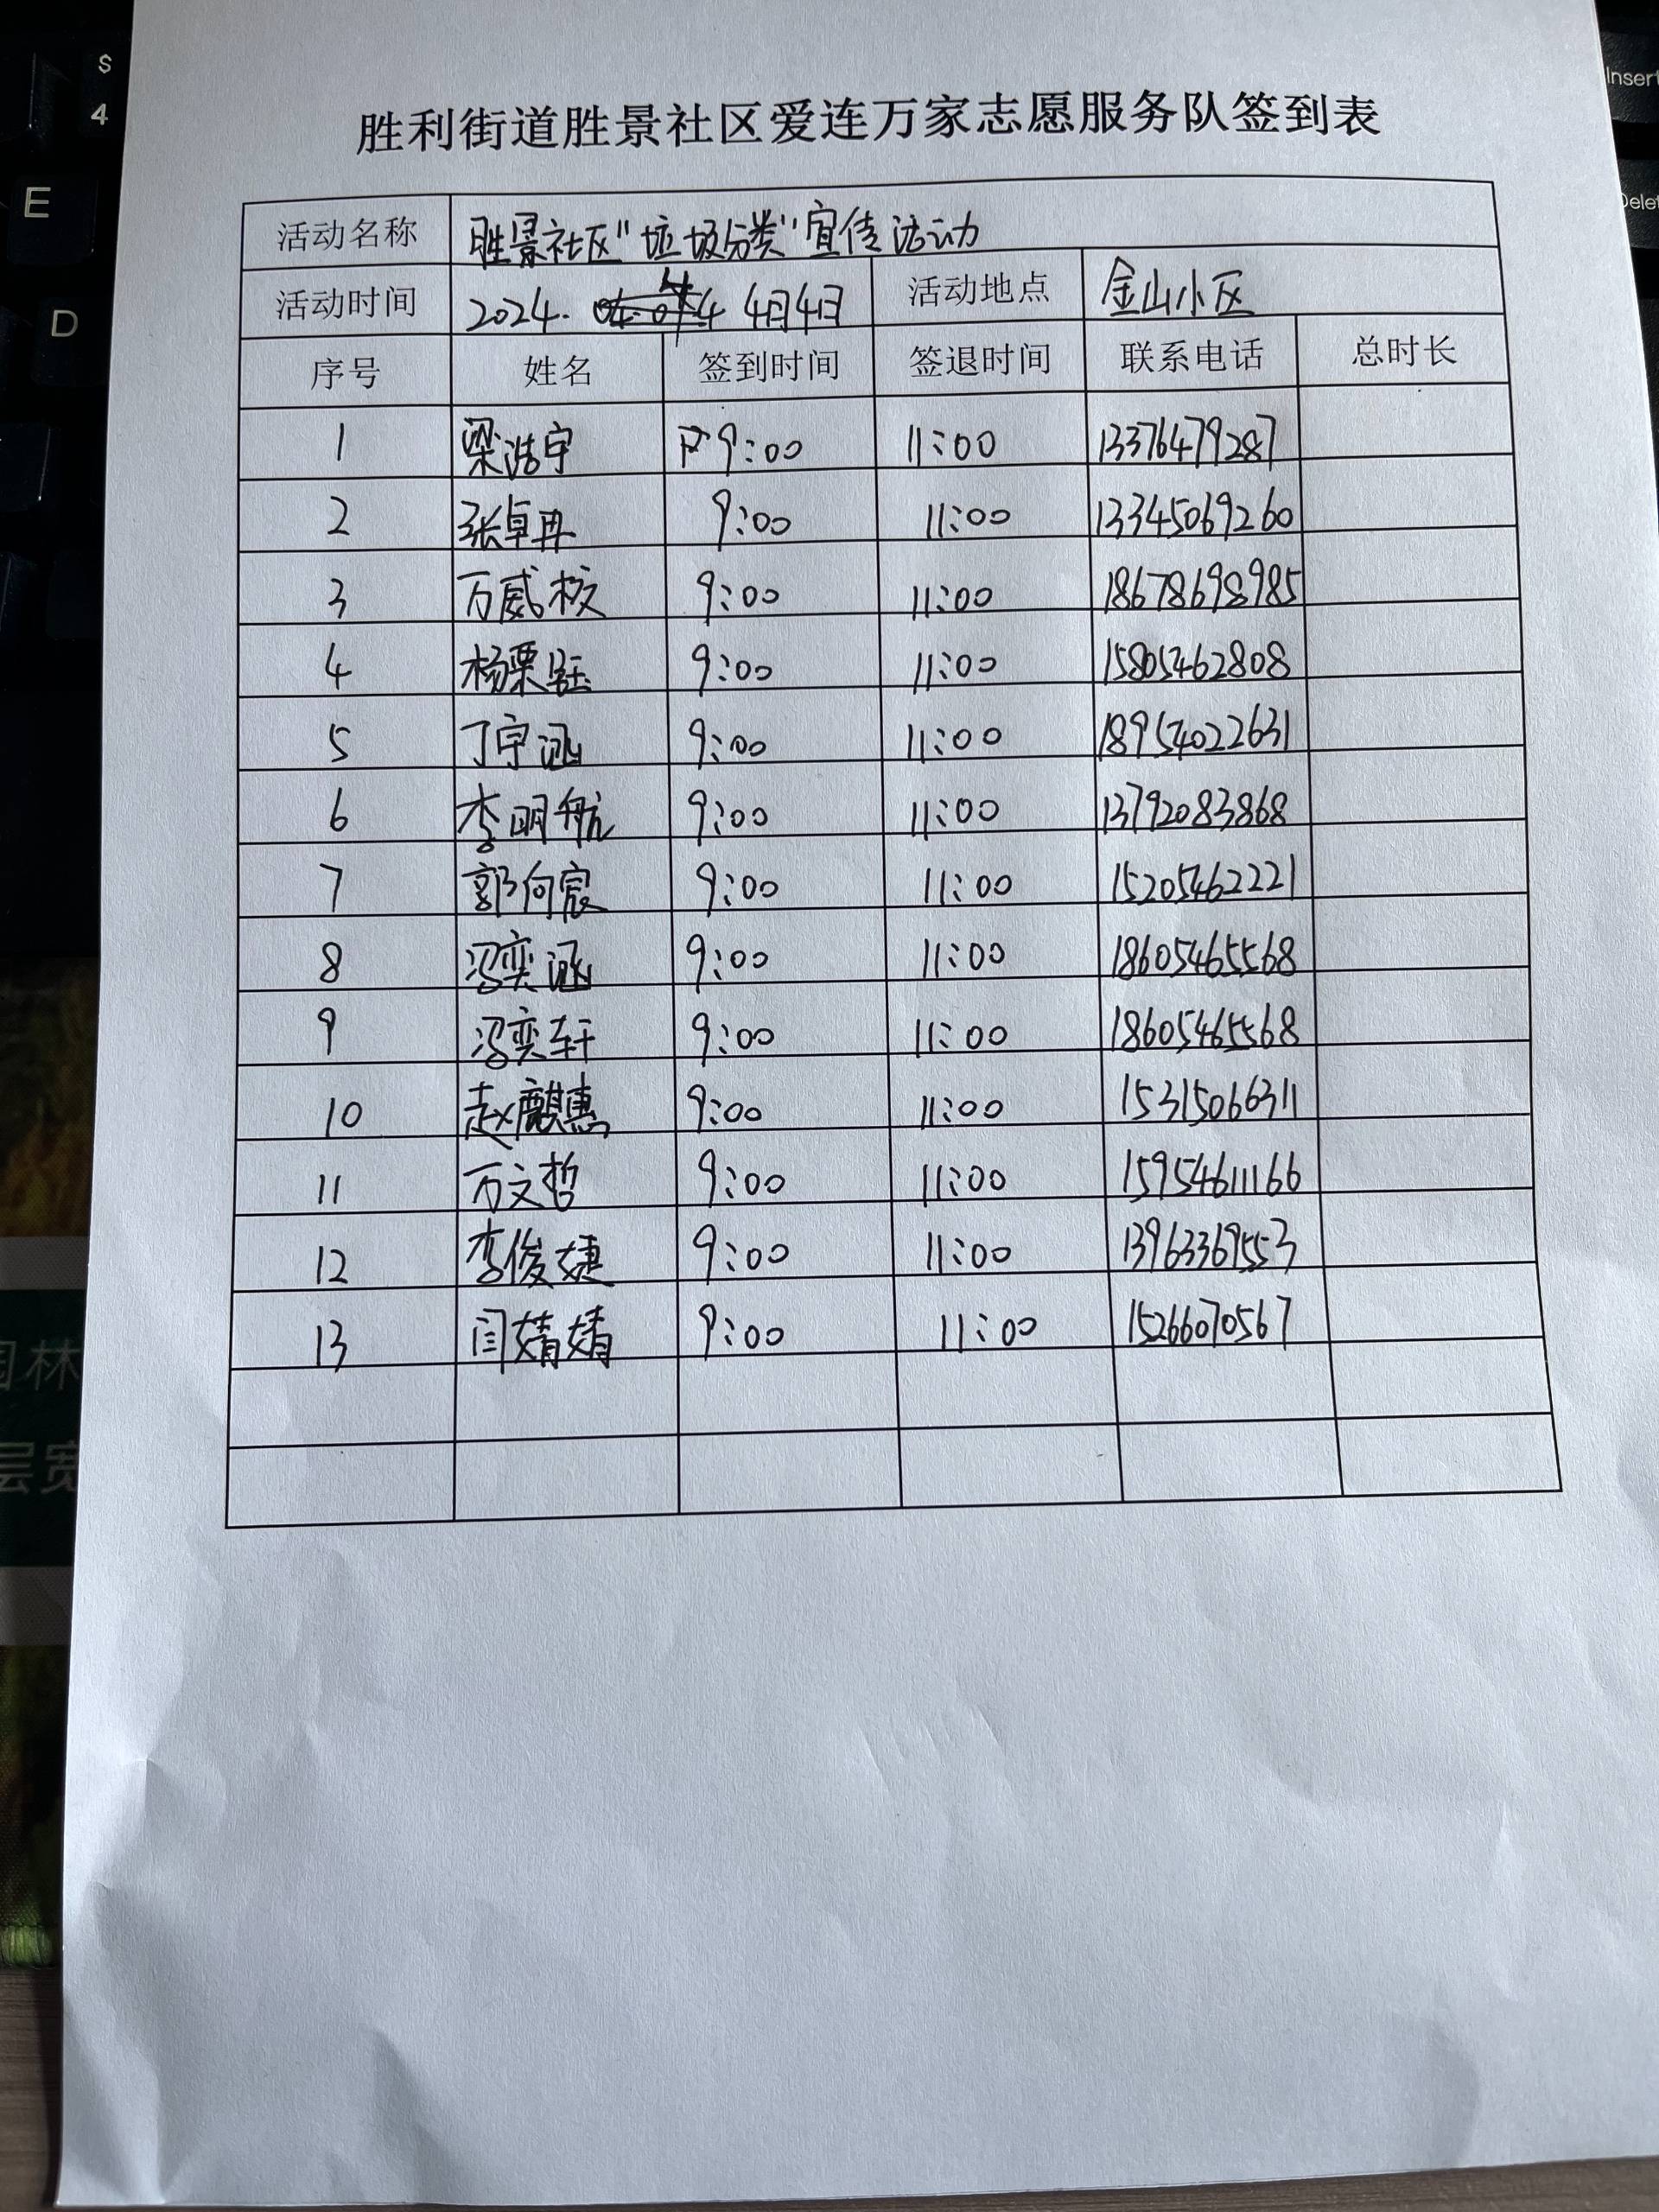 胜利街道胜景社区爱连万家志愿服务队签到表
活动名称 胜景社区"垃圾分类"宣传活动
活动时间 2024. 4月4日 活动地点 金山小区
序号 姓名 签到时间 签退时间 联系电话 总时长
1 梁浩宇 9:00 11:00 13376479287
2 张卓冉 9:00 11:00 13345069260
3 万威校 9:00 11:00 18678698985
4 杨栗钰 9:00 11:00 15805462808
5 丁宇涵 9:00 11:00 18954022631
6 李明航 9:00 11:00 13792083868
7 郭向宸 9:00 11:00 15205462221
8 冯奕涵 9:00 11:00 18605465568
9 冯奕轩 9:00 11:00 18605465568
10 赵麒惠 9:00 11:00 15315066311
11 万文哲 9:00 11:00 15954611166
12 李俊婕 9:00 11:00 13963369553
13 闫婧婧 9:00 11:00 15266070567
$
4
E
D
Insert
园林
层宽